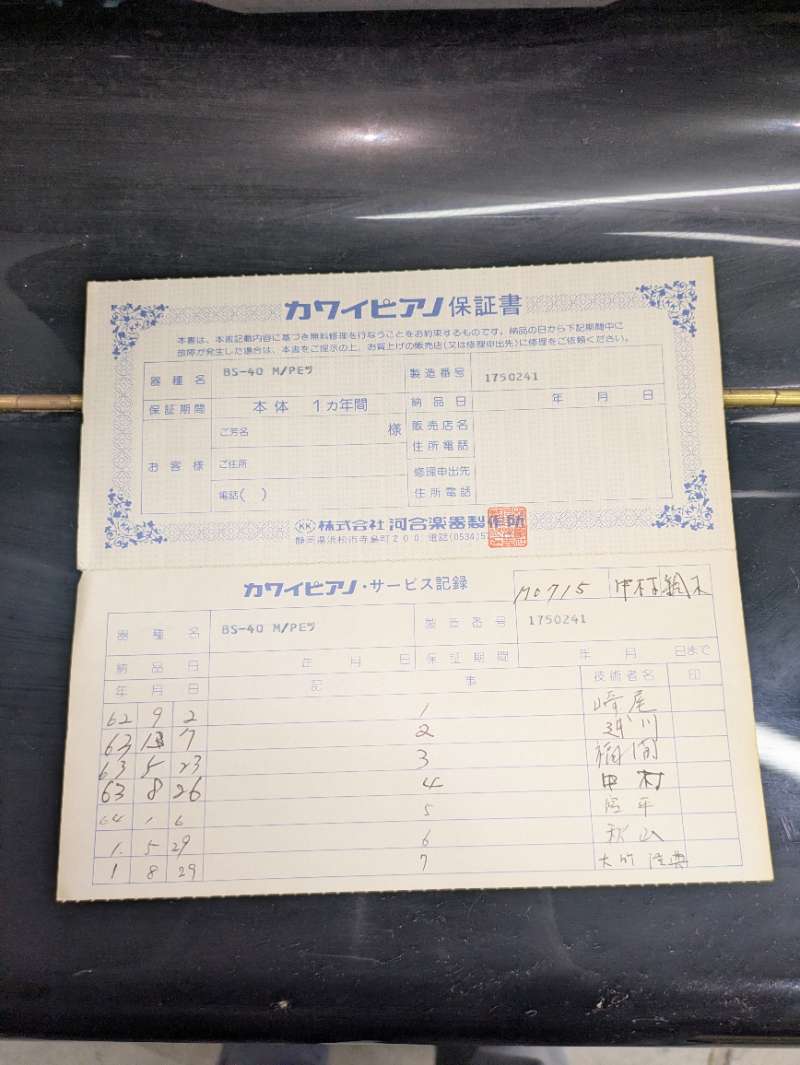 カワイピアノ 保証書
本書は、本書記載内容に基づき無料修理を行なうことをお約束するものです。納品の日から下記期間中に
故障が発生した場合は、本書をご提示の上、お買上げの販売店(又は修理申出先)に修理をご依頼ください。
器種名 BS-40 M/PEヲ 製造番号 1750241
保証期間 本体 1カ年間 納品日 年 月 日
お客様 ご芳名 様 販売店名
住所電話
ご住所
修理申出先
電話( ) 住所電話
KK 株式会社 河合楽器製作所
静岡県浜松市寺島町200 電話(0534)
カワイピアノ・サービス記録 中村
器種名 BS-40 M/PEヲ 製造番号 1750241
納品日 年 月 日 保証期間 年 月 日まで
年 月 日 記事 技術者名 印
62 9 2 1 崎尾
63 7 2
63 5 23 3
63 8 26 4 中村
64 1 6 5
1. 5 29 6 秋山
1 8 29 7 大竹